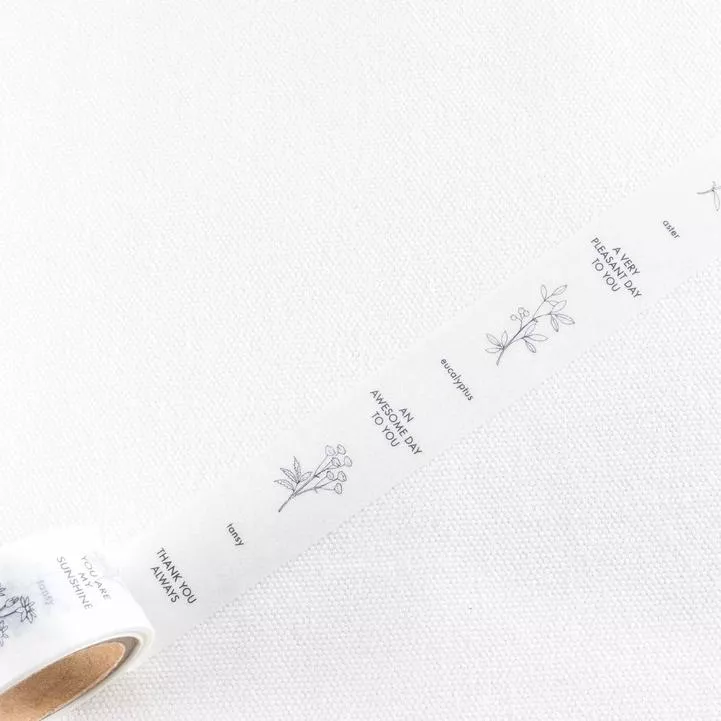 YOU ARE
MY
SUNSHINE
tansy
THANK YOU
ALWAYS
tansy
AN
AWESOME DAY
TO YOU
eucalyptus
A VERY
PLEASANT DAY
TO YOU
aster